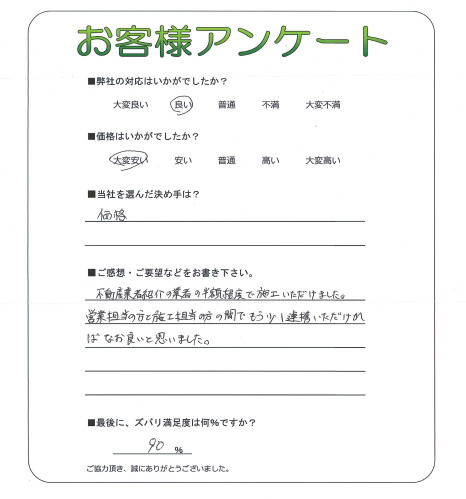 お客様アンケート
■弊社の対応はいかがでしたか？
大変良い 良い 普通 不満 大変不満
■価格はいかがでしたか？
大変安い 安い 普通 高い 大変高い
■当社を選んだ決め手は？
価格
■ご感想・ご要望などをお書き下さい。
不動産業者紹介の業者の半額程度で施工いただけました。
営業担当の方と施工担当の方の間でもう少し連携いただけれ
ばなお良いと思いました。
■最後に、ズバリ満足度は何％ですか？
90 ％
ご協力頂き、誠にありがとうございました。